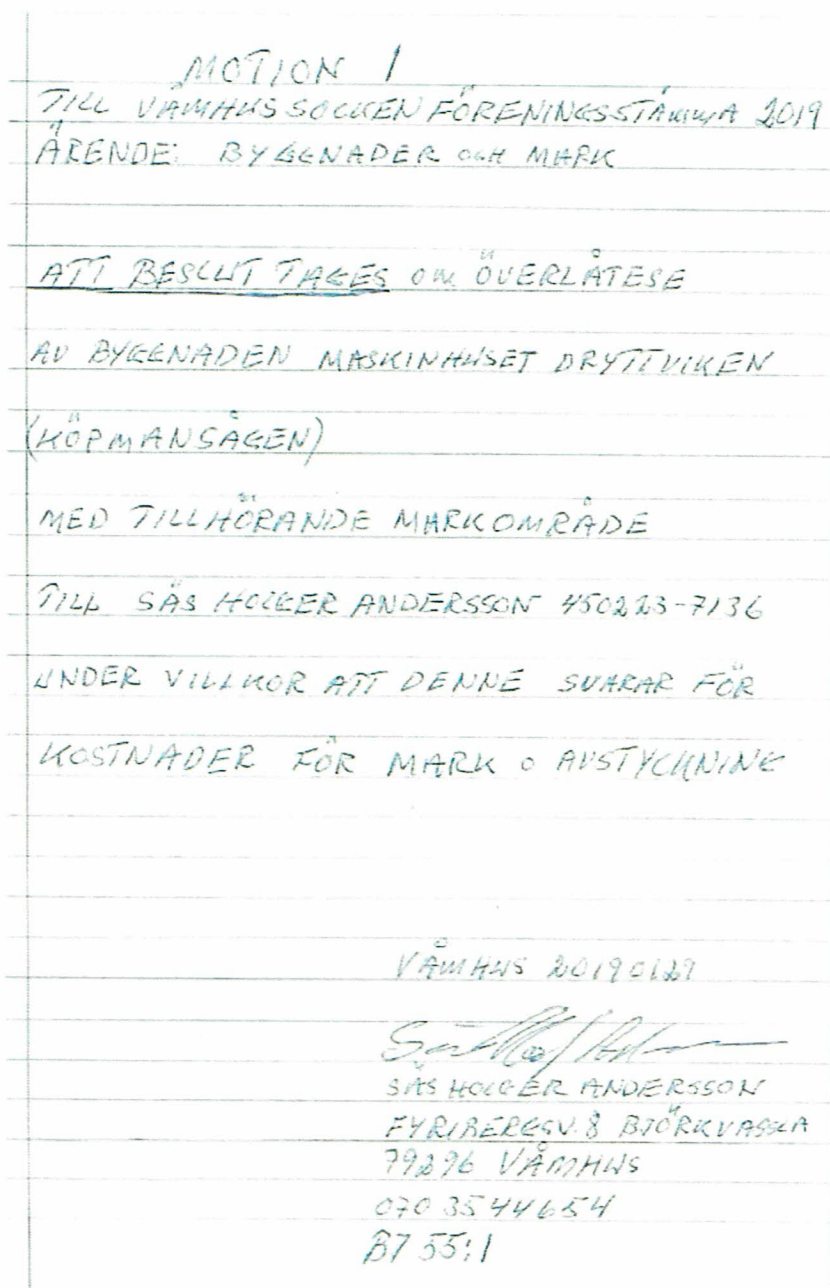 MOTION 1
TILL VÅMHUS SOCKENFÖRENINGSSTÄMMA 2019
ÄRENDE: BYGGNADER OCH MARK
ATT BESLUT TAGES OM ÖVERLÅTESE
AV BYGGNADEN MASKINHUSET DRYTTVIKEN
(KÖPMANSÅGEN)
MED TILLHÖRANDE MARKOMRÅDE
TILL SÄS HOLGER ANDERSSON 450223-7136
UNDER VILLKOR ATT DENNE SVARAR FÖR
KOSTNADER FÖR MARK O AVSTYCKNING
VÅMHUS 20190129
SÄS HOLGER ANDERSSON
FYRIBERGSV. 8 BJÖRKVASSLA
79296 VÅMHUS
070 3544654
B7 55:1